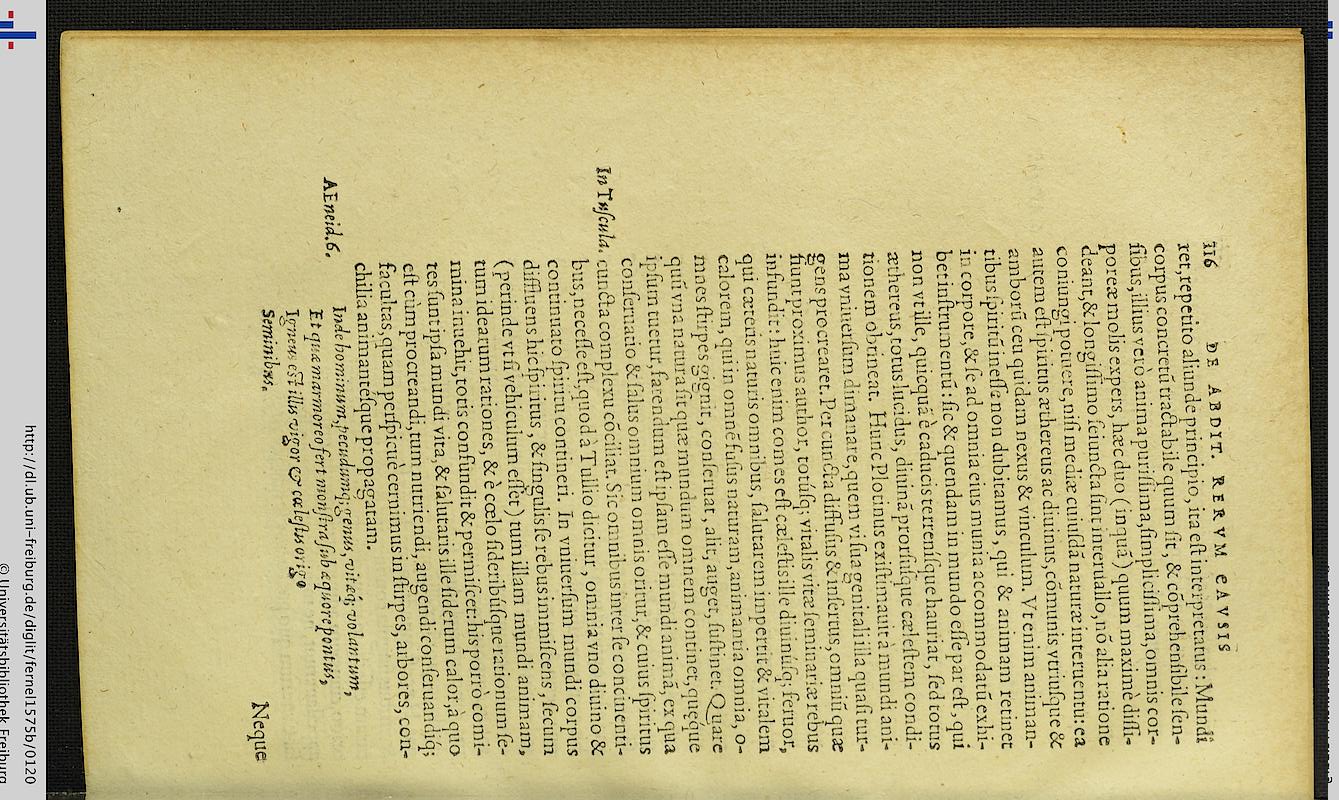 116 DE ABDIT. RERVM CAVSIS
ret, repetito aliunde principio, ita est interpretatus: Mundi
corpus concretū tractabile quum sit, & cōprehensibile sen-
sibus, illius verò anima purissima, simplicissima, omnis cor-
poreæ molis expers, hæc duo (inquā) quum maximè dissi-
deant, & longissimo seiuncta sint interuallo, nō alia ratione
coniungi potuere, nisi mediæ cuiusdā naturæ interuentu: ea
autem est spiritus æthereus ac diuinus, cōmunis vtriusque &
amborū ceu quidam nexus & vinculum. Vt enim animan-
tibus spiritū inesse non dubitamus, qui & animam retinet
in corpore, & se ad omnia eius munia accommodatū exhi-
bet instrumentū: sic & quendam in mundo esse par est, qui
non vtile, quicquā è caducis terrenísque hauriat, sed totus
æthereus, totus lucidus, diuinā prorsúsque cælestem condi-
tionem obtineat. Hunc Plotinus existimauit à mundi ani-
ma vniuersum dimanare, quem vi sua genitali illa quasi tur-
gens procrearet. Per cuncta diffusus & insertus, omniū quæ
fiunt proximus author, totúsq; vitalis vitæ seminariæ rebus
infundit: huic enim comes est cælestis ille diuinúsq; feruor,
qui cæteris naturis omnibus, salutarem impertit & vitalem
calorem, qui in omnē fusus naturam, animantia omnia, o-
mnes stirpes gignit, conseruat, alit, auget, sustinet. Quare
qui vna natura sit quæ mundum omnem continet, quęque
ipsum tuetur, fatendum est ipsam esse mundi animā, ex qua
conseruatio & salus omnium omnis oritur, & cuius spiritus
In Tuscula. cuncta complexu cōciliat. Sic omnibus inter se concinenti-
bus, necesse est, quod à Tullio dicitur, omnia vno diuino &
continuato spiritu contineri. In vniuersum mundi corpus
diffluens hic spiritus, & singulis se rebus immiscens, secum
(perinde vt si vehiculum esset) tum illam mundi animam,
tum idearum rationes, & è cœlo sideribúsque rationum se-
mina inuehit, totis confundit & permiscet: his porrò comi-
tes sunt ipsa mundi vita, & salutaris ille siderum calor, à quo
est cum procreandi, tum nutriendi, augendi conseruandíq;
facultas, quam perspicuè cernimus in stirpes, arbores, con-
chilia animantésque propagatam.
AEneid. 6. Inde hominum, pecudumq; genus, vitæq; volantum,
Et quæ marmoreo fert monstra sub æquore pontus,
Igneus est illis vigor & cœlestis origo
Seminibus.
Neque
http://dl.ub.uni-freiburg.de/diglit/fernel1575b/0120
© Universitätsbibliothek Freiburg